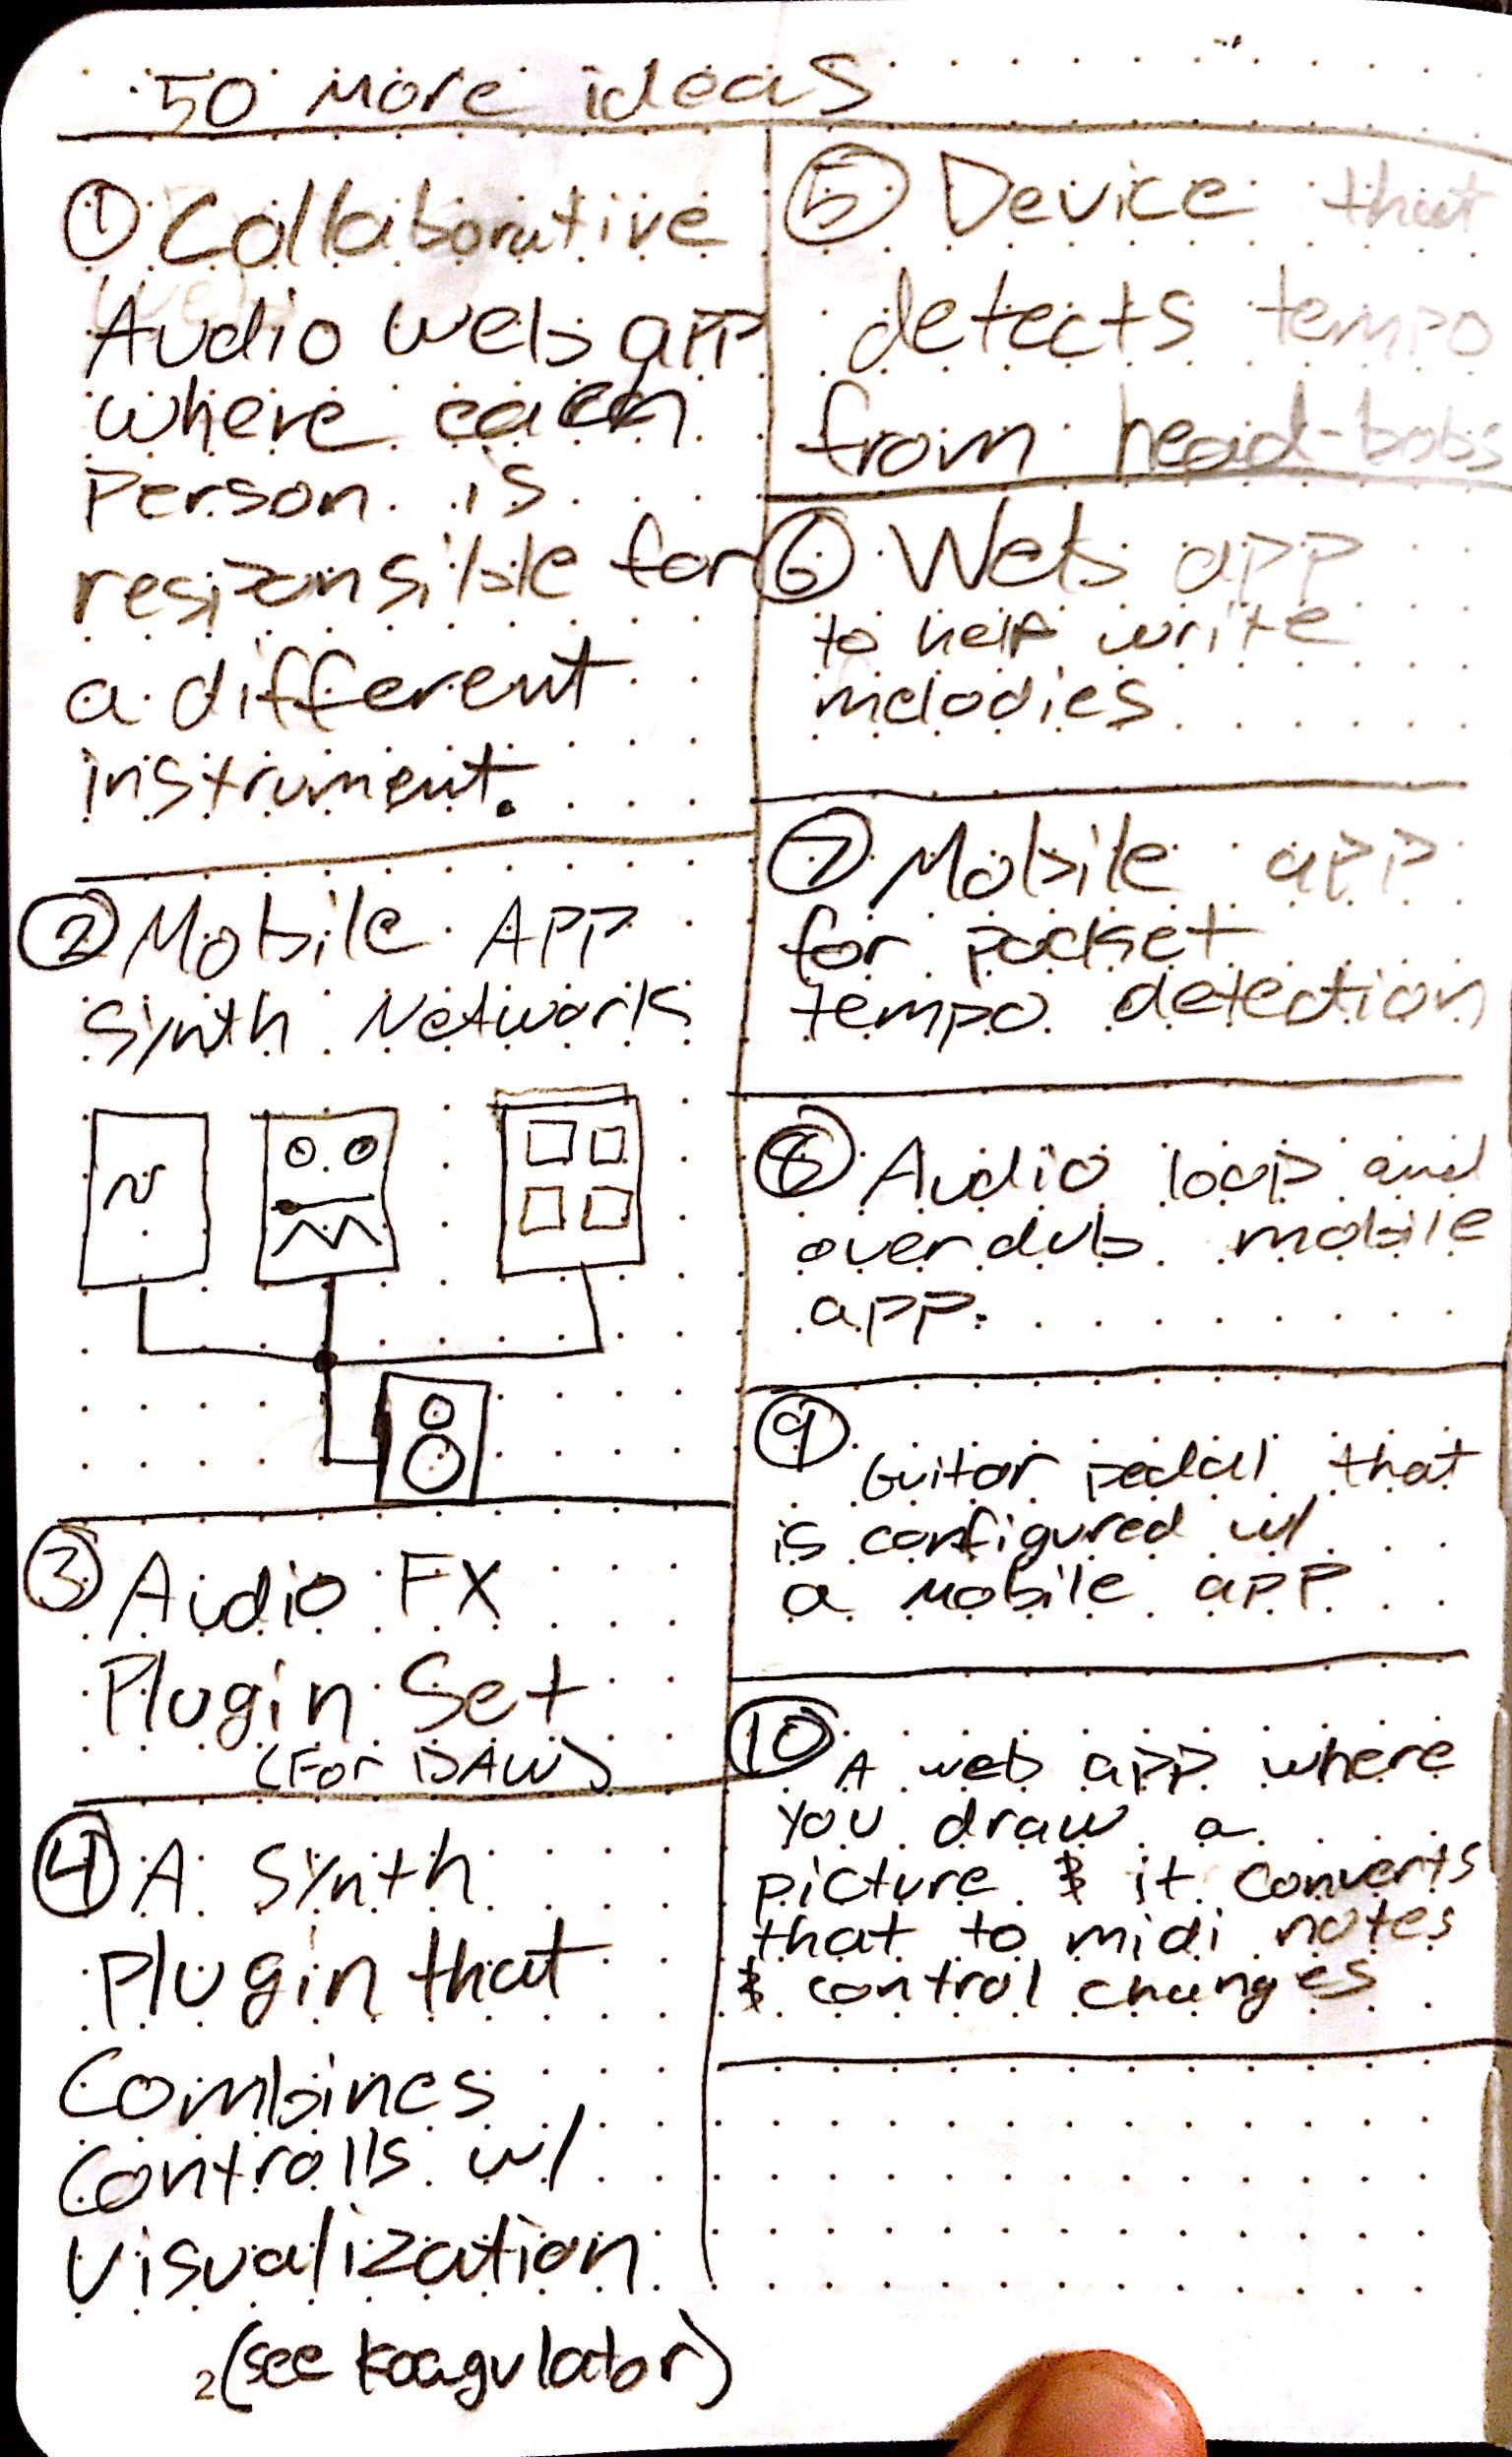 50 more ideas
① Collaborative
Audio web app
where each
person is
responsible for
a different
instrument.
② Mobile App
Synth Network
③ Audio FX
Plugin Set
(For DAW)
④ A Synth
plugin that
Combines
Controlls w/
Visualization
(see koagulator)
2
⑤ Device that
detects tempo
from head-bobs
⑥ Web app
to help write
melodies
⑦ Mobile app
for pocket
tempo detection
⑧ Audio loop and
overdub mobile
app.
⑨ Guitar pedal that
is configured w/
a mobile app
⑩ A web app where
you draw a
picture & it converts
that to midi notes
& control changes